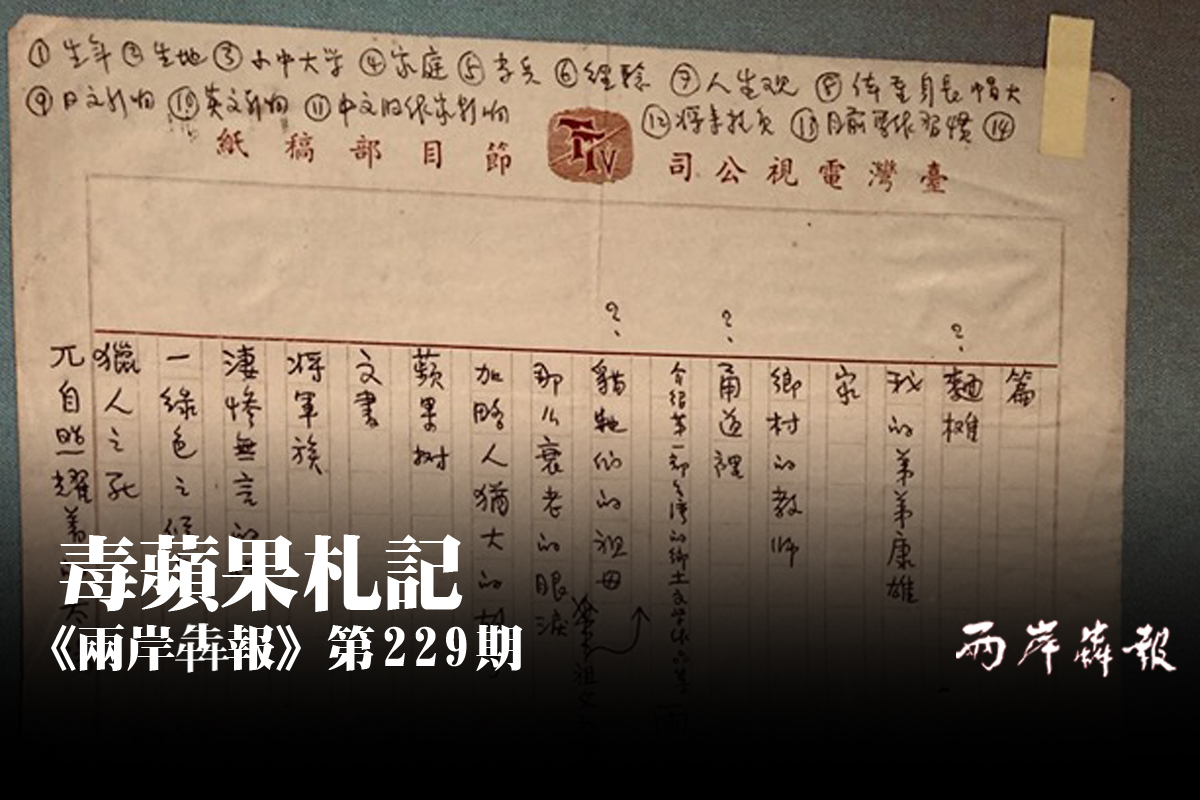 ①生年②生地③小中大学④家庭⑤當兵⑥經驗⑦人生观⑧体重身長帽大
⑨日文影响⑩英文影响⑪中文旧体家影响⑫ ⑬目前 習慣⑭
臺灣電視公司 TTV 節目部稿紙
篇
?麵攤
我的弟弟康雄
家
鄉村的教師
?甬道裡
介紹第一部台湾的鄉土文学作品
?貓牠们的祖母
祖父
那么衰老的眼淚
加略人猶大的
蘋果树
文書
将軍族
淒慘無言的
一綠色之候
獵人之死
兀自照耀着
毒蘋果札記
《兩岸犇報》第229期
兩岸犇報